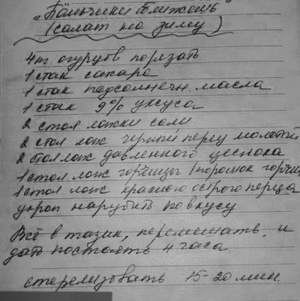 „Пальчики оближешь"
(салат на зиму)
4 кг огурцов порезать
1 стак сахара
1 стак подсолнечн. масла
1 стак 9% уксуса
2 стол ложки соли
2 стол лож черный перец молотый
2 стол лож давленного чеснока
1 стол лож горчицы (порошок горчиц
1 стол лож красного острого перца
укроп нарубить по вкусу
Всё в тазик, перемешать, и
дать постоять 4 часа
стерелизовать 15-20 мин